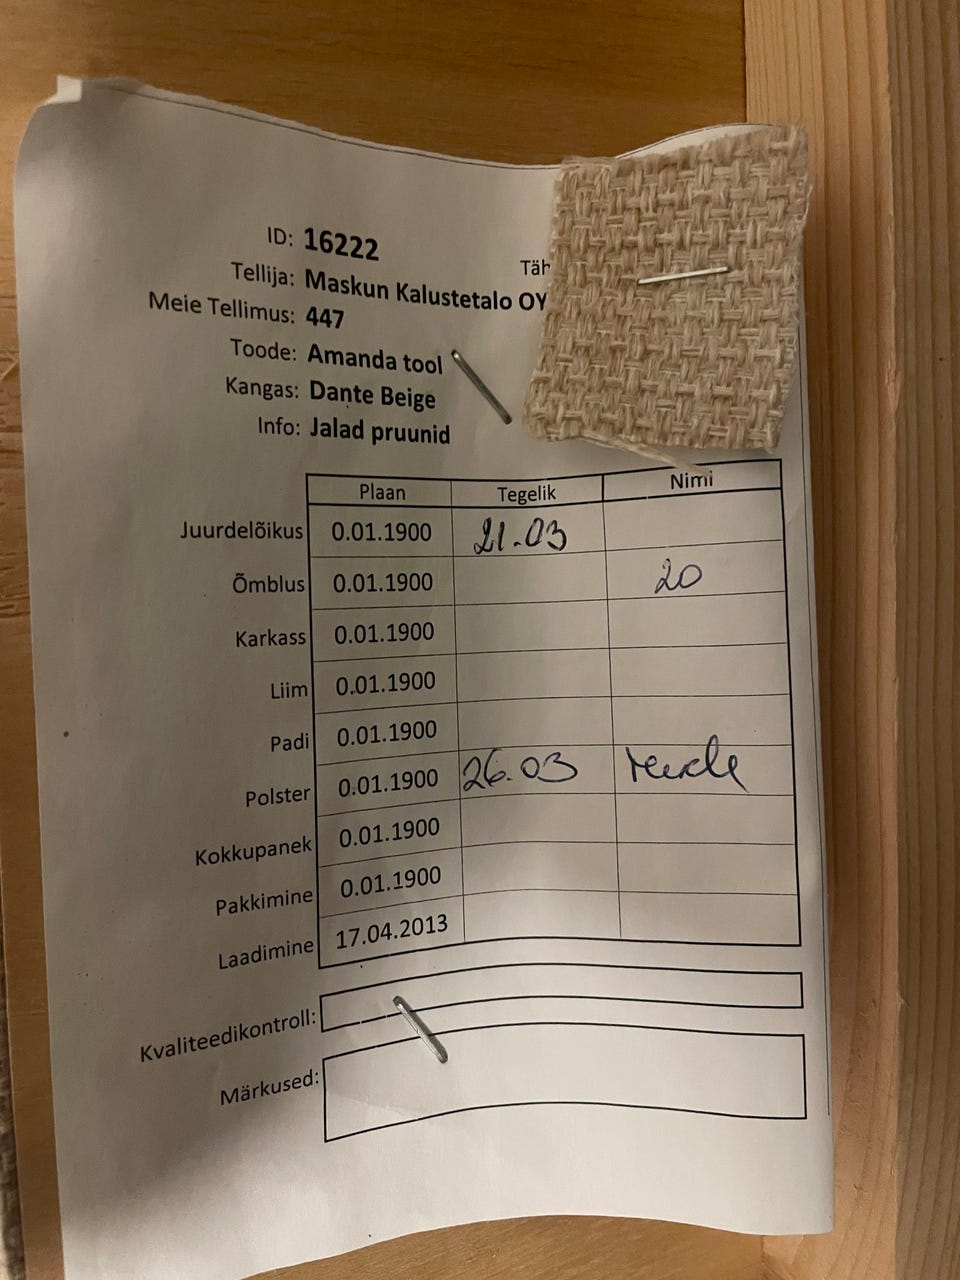 ID: 16222
Täh
Tellija: Maskun Kalustetalo OY
Meie Tellimus: 447
Toode: Amanda tool
Kangas: Dante Beige
Info: Jalad pruunid
Plaan Tegelik Nimi
Juurdelõikus 0.01.1900 21.03
Õmblus 0.01.1900 20
Karkass 0.01.1900
Liim 0.01.1900
Padi 0.01.1900
Polster 0.01.1900 26.03
Kokkupanek 0.01.1900
Pakkimine 0.01.1900
Laadimine 17.04.2013
Kvaliteedikontroll:
Märkused: